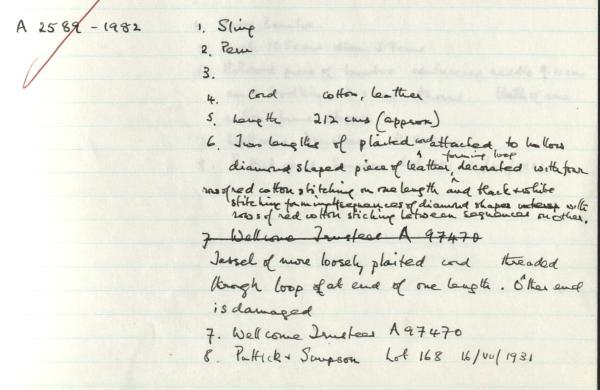 A 2589 - 1982
1. Sling
2. Peru
3.
4. Cord cotton, leather
5. Length 212 cms (approx)
6. Two lengths of plaited cord attached to hollow
diamond shaped piece of leather, forming loop decorated with four
rows of red cotton stitching on one length and black & white
stitching forming sequences of diamond shapes with
rows of red cotton stiching between sequences on other.
7. Wellcome Trustees A 97470
Tassel of more loosely plaited cord threaded
through loop of at end of one length. Other end
is damaged
7. Wellcome Trustees A 97470
8. Puttick & Simpson Lot 168 16/VII/1931